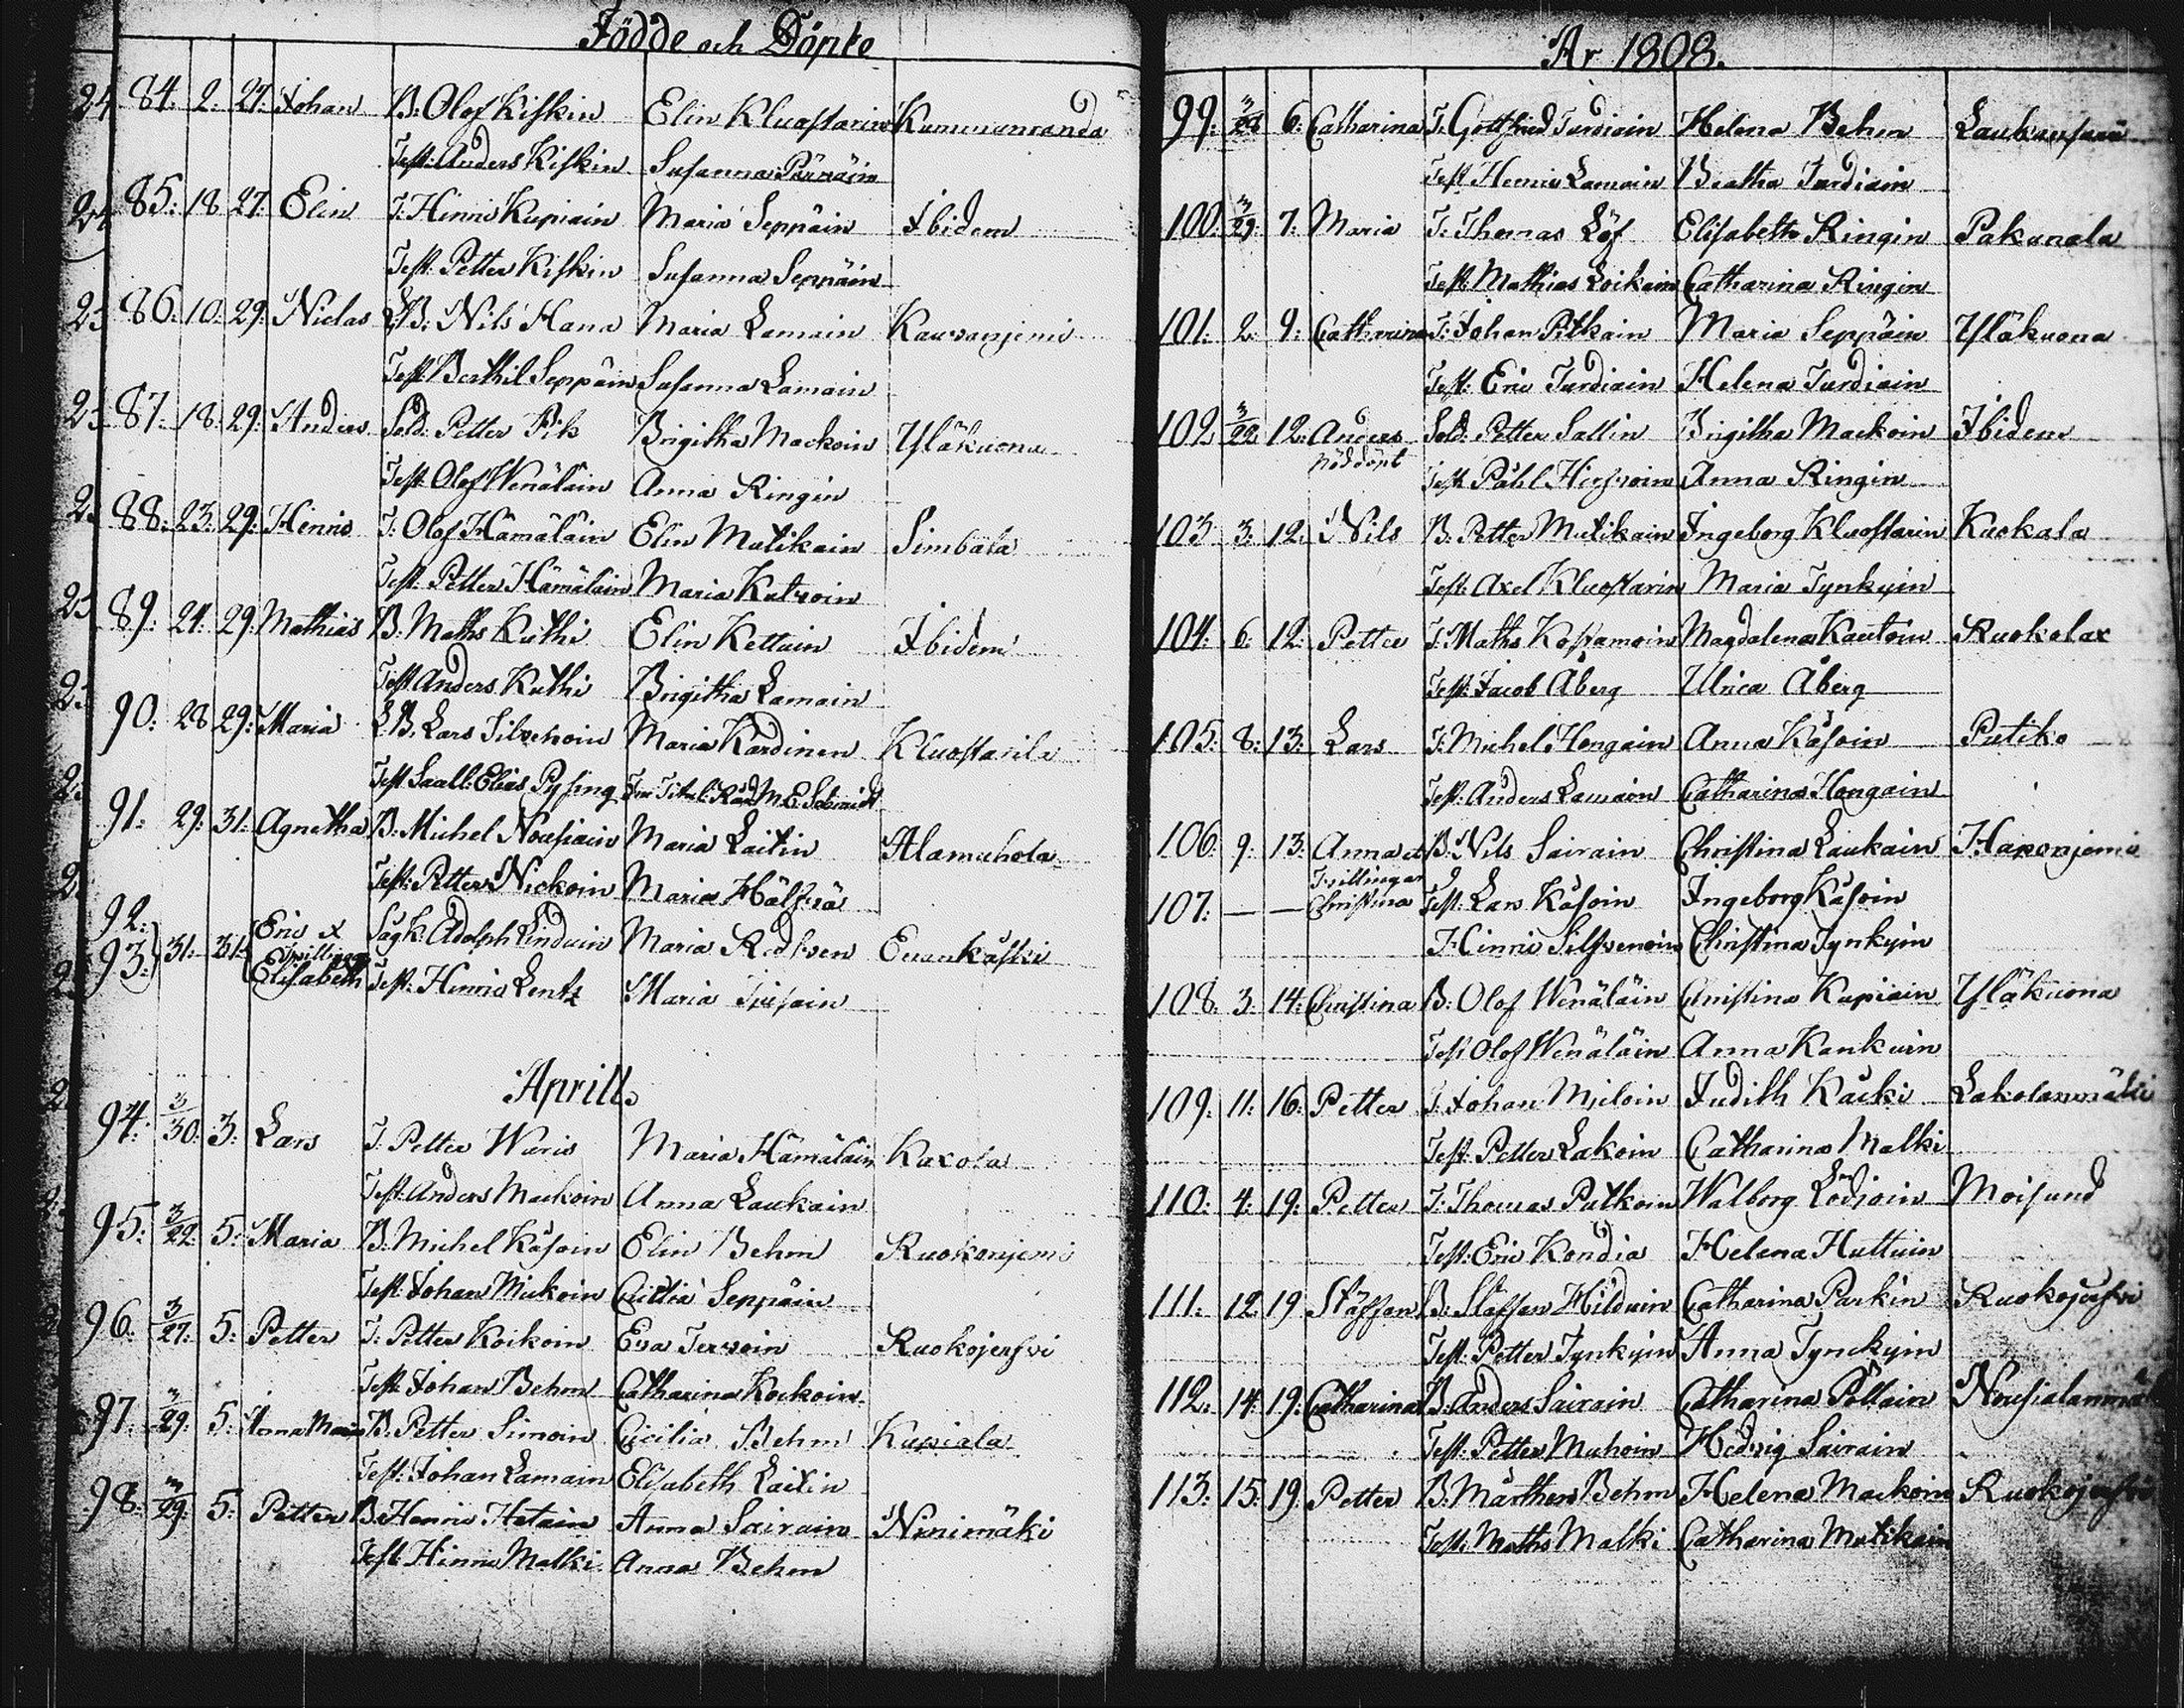 Födde och Döpte
84. 2. 27. Johan B: Olof Kiskin Elin Kluastarin Kummunranda
Test: Anders Kiskin Susanna Pärnäin
85: 18 27: Elin T: Hinric Kupiain Maria Seppäin Ibidem
Test: Petter Kiskin Susanna Seppäin
86. 10. 29: Niclas LB: Nils Hana Maria Lamain Kauvanjemi
Test: Berthil Seppäin Susanna Lamain
87. 18. 29: Anders Sold: Petter Pik Brigitha Mackoin Yläkuona
Test Olof Wenäläin Anna Ringin
88: 23: 29: Hinric T: Olof Hämäläin Elin Mutikain Simbala
Test: Petter Hämäläin Maria Kutvoin
89: 24. 29: Mathias B: Maths Kuthi Elin Kettuin Ibidem
Test Anders Kuthi Brigitha Lamain
90. 28 29: Maria LB. Lars Silvenoin Maria Kardinen Kluastarila
Test Elias Pysing M E Schmidt
91: 29: 31: Agnetha B: Michel Nousiain Maria Laitin Alamuhola
Test: Petter Nickoin Maria Hälfvä
92: Eric & Sågk: Adolph Linduin Maria Rödsven Enankoski
93: 31: 31: Tvillingar
Elisabeth Test: Hinric Lentz Maria
Aprill
94: 3/30: 3: Lars T: Petter Waris Maria Hämäläin Kaxola
Test: Anders Mackoin Anna Laukain
95: 3/29: 5: Maria B: Michel Käsoin Elin Behm Ruokonjemi
Test: Johan Mickoin Cicilia Seppäin
96. 3/27: 5: Petter T: Petter Koikoin Eva Tervoin Ruokojerfvi
Test: Johan Behm Catharina Kockoin
97. 3/29: 5: Anna Maria B: Petter Simoin Cicilia Behm Kupiala
Test: Johan Lamain Elisabeth Laitin
98: 3/29: 5: Petter B: Henric Hetain Anna Sairain Ninimäki
Test: Hinric Malki Anna Behm
År 1808.
99: 3/28 6: Catharina T: Gottfried Turdiain Helena Behm Laukansaari
Test Henric Lamain Beatha Turdiain
100: 3/29: 7: Maria T: Thomas Löf Elisabeth Ringin Pakunala
Test: Mathias Loikain Catharina Ringin
101: 2: 9: Catharina T: Johan Pitkain Maria Seppäin Yläkuona
Test: Eric Turdiain Helena Turdiain
102 3/22 12: Anders Sold: Petter Sallin Brigitha Mackoin Ibidem
nöddöpt Test Påhl Hirfvoin Anna Ringin
103 3: 12: Nils B: Petter Mutikain Ingeborg Kluostarin Kuokala
Test: Axel Kluostarin Maria Tynkyin
104: 6: 12: Petter T: Maths Kossamoin Magdalena Kautoin Ruokolax
Test: Jacob Åberg Ulrica Åberg
105: 8: 13: Lars T: Michel Hongain Anna Käsoin Putiko
Test: Anders Lamain Catharina Hongain
106: 9: 13: Anna et B: Nils Sairain Christina Laukain Haponjemi
Tvillingar
107: — — Christina Test: Lars Käsoin Ingeborg Käsoin
Hinric Silfvenoin Christina Tynkyin
108. 3: 14: Christina B: Olof Wenäläin Christina Kupiain Yläkuona
Test Olof Wenäläin Anna Kankuin
109: 11: 16: Petter T: Johan Miloin Judith Kaski Lakolanmäki
Test: Petter Lakoin Catharina Malki
110: 4: 19: Petter T: Thomas Putkoin Walborg Lödjoin Moisund
Test: Eric Kondia Helena Huttuin
111: 12: 19 Staffan B: Staffan Hilduin Catharina Parkin Ruokojerfvi
Test: Petter Tynkyin Anna Tynckyin
112: 14: 19: Catharina B: Anders Sairain Catharina Pöllain Nousialanmäki
Test: Petter Muhoin Hedvig Sairain
113: 15: 19: Petter B: Mårthen Behm Helena Mackoin Ruokojerfvi
Test: Maths Malki Catharina Mutikain